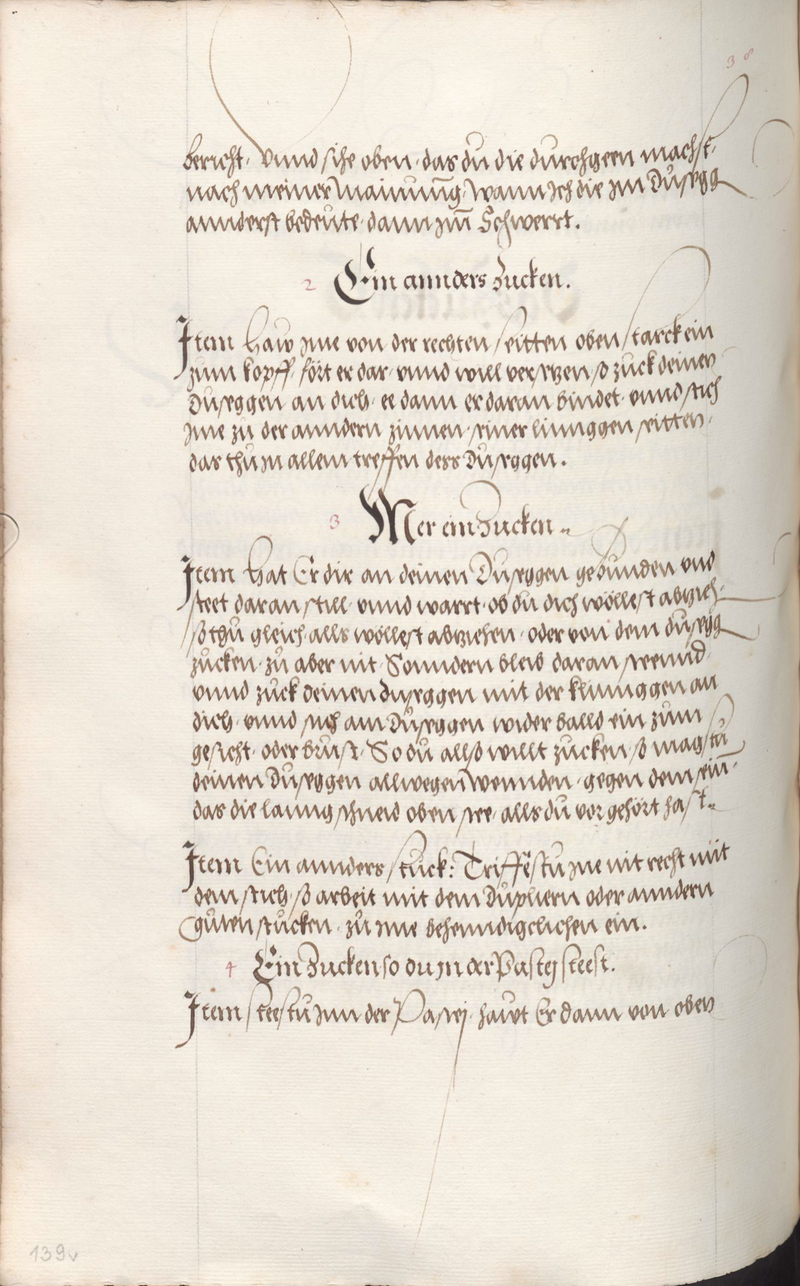 38
bericht. Vnnd sihe oben. das du die durchgeen machst.
nach meiner Mainung. Wann Ich die Im Dusegg
annderst bedeute. dann Im Schwerrt.
2 Ein annders Zucken.
Item Haw Ime von der rechten seitten oben starck ein
zum kopff. fört er dar. vnnd will versetzen. so zuck deinen
Duseggen an dich. ee dann er daran bindet. vnnd stich
Ime zu der anndern zinnen. seiner linnggen seitten.
das thu in allem treffen dess Duseggen.
3 Mer ein Zucken
Item Hat Er dir an deinen Duseggen gebunden vnd
steet daran still. vnnd warrt. ob du dich wöllest abzieh
so thu gleich alls wöllest abziehen. oder von dem dusegg
zucken. zu aber nit. Sonndern bleib daran
vnnd zuck deinen duseggen mit der klinnggen an
dich. vnnd stich am Duseggen wider balld ein zum
gesicht. oder brust. So du allso willt zucken. so magstu
deinen Duseggen allwegen wennden. gegen dem sein.
das die lanng schneid oben see. alls du vor gehört hast.
Item Ein annders stuck: Triffestu Ime nit recht mit
dem stich. so arbeit mit dem Dupliern oder anndern
guten stucken. zu Ime behenndigclichen ein.
4 Ein Zucken so du In der Pastey steest.
Item steestu Inn der Pastej. hawt Er dann von oben
139v